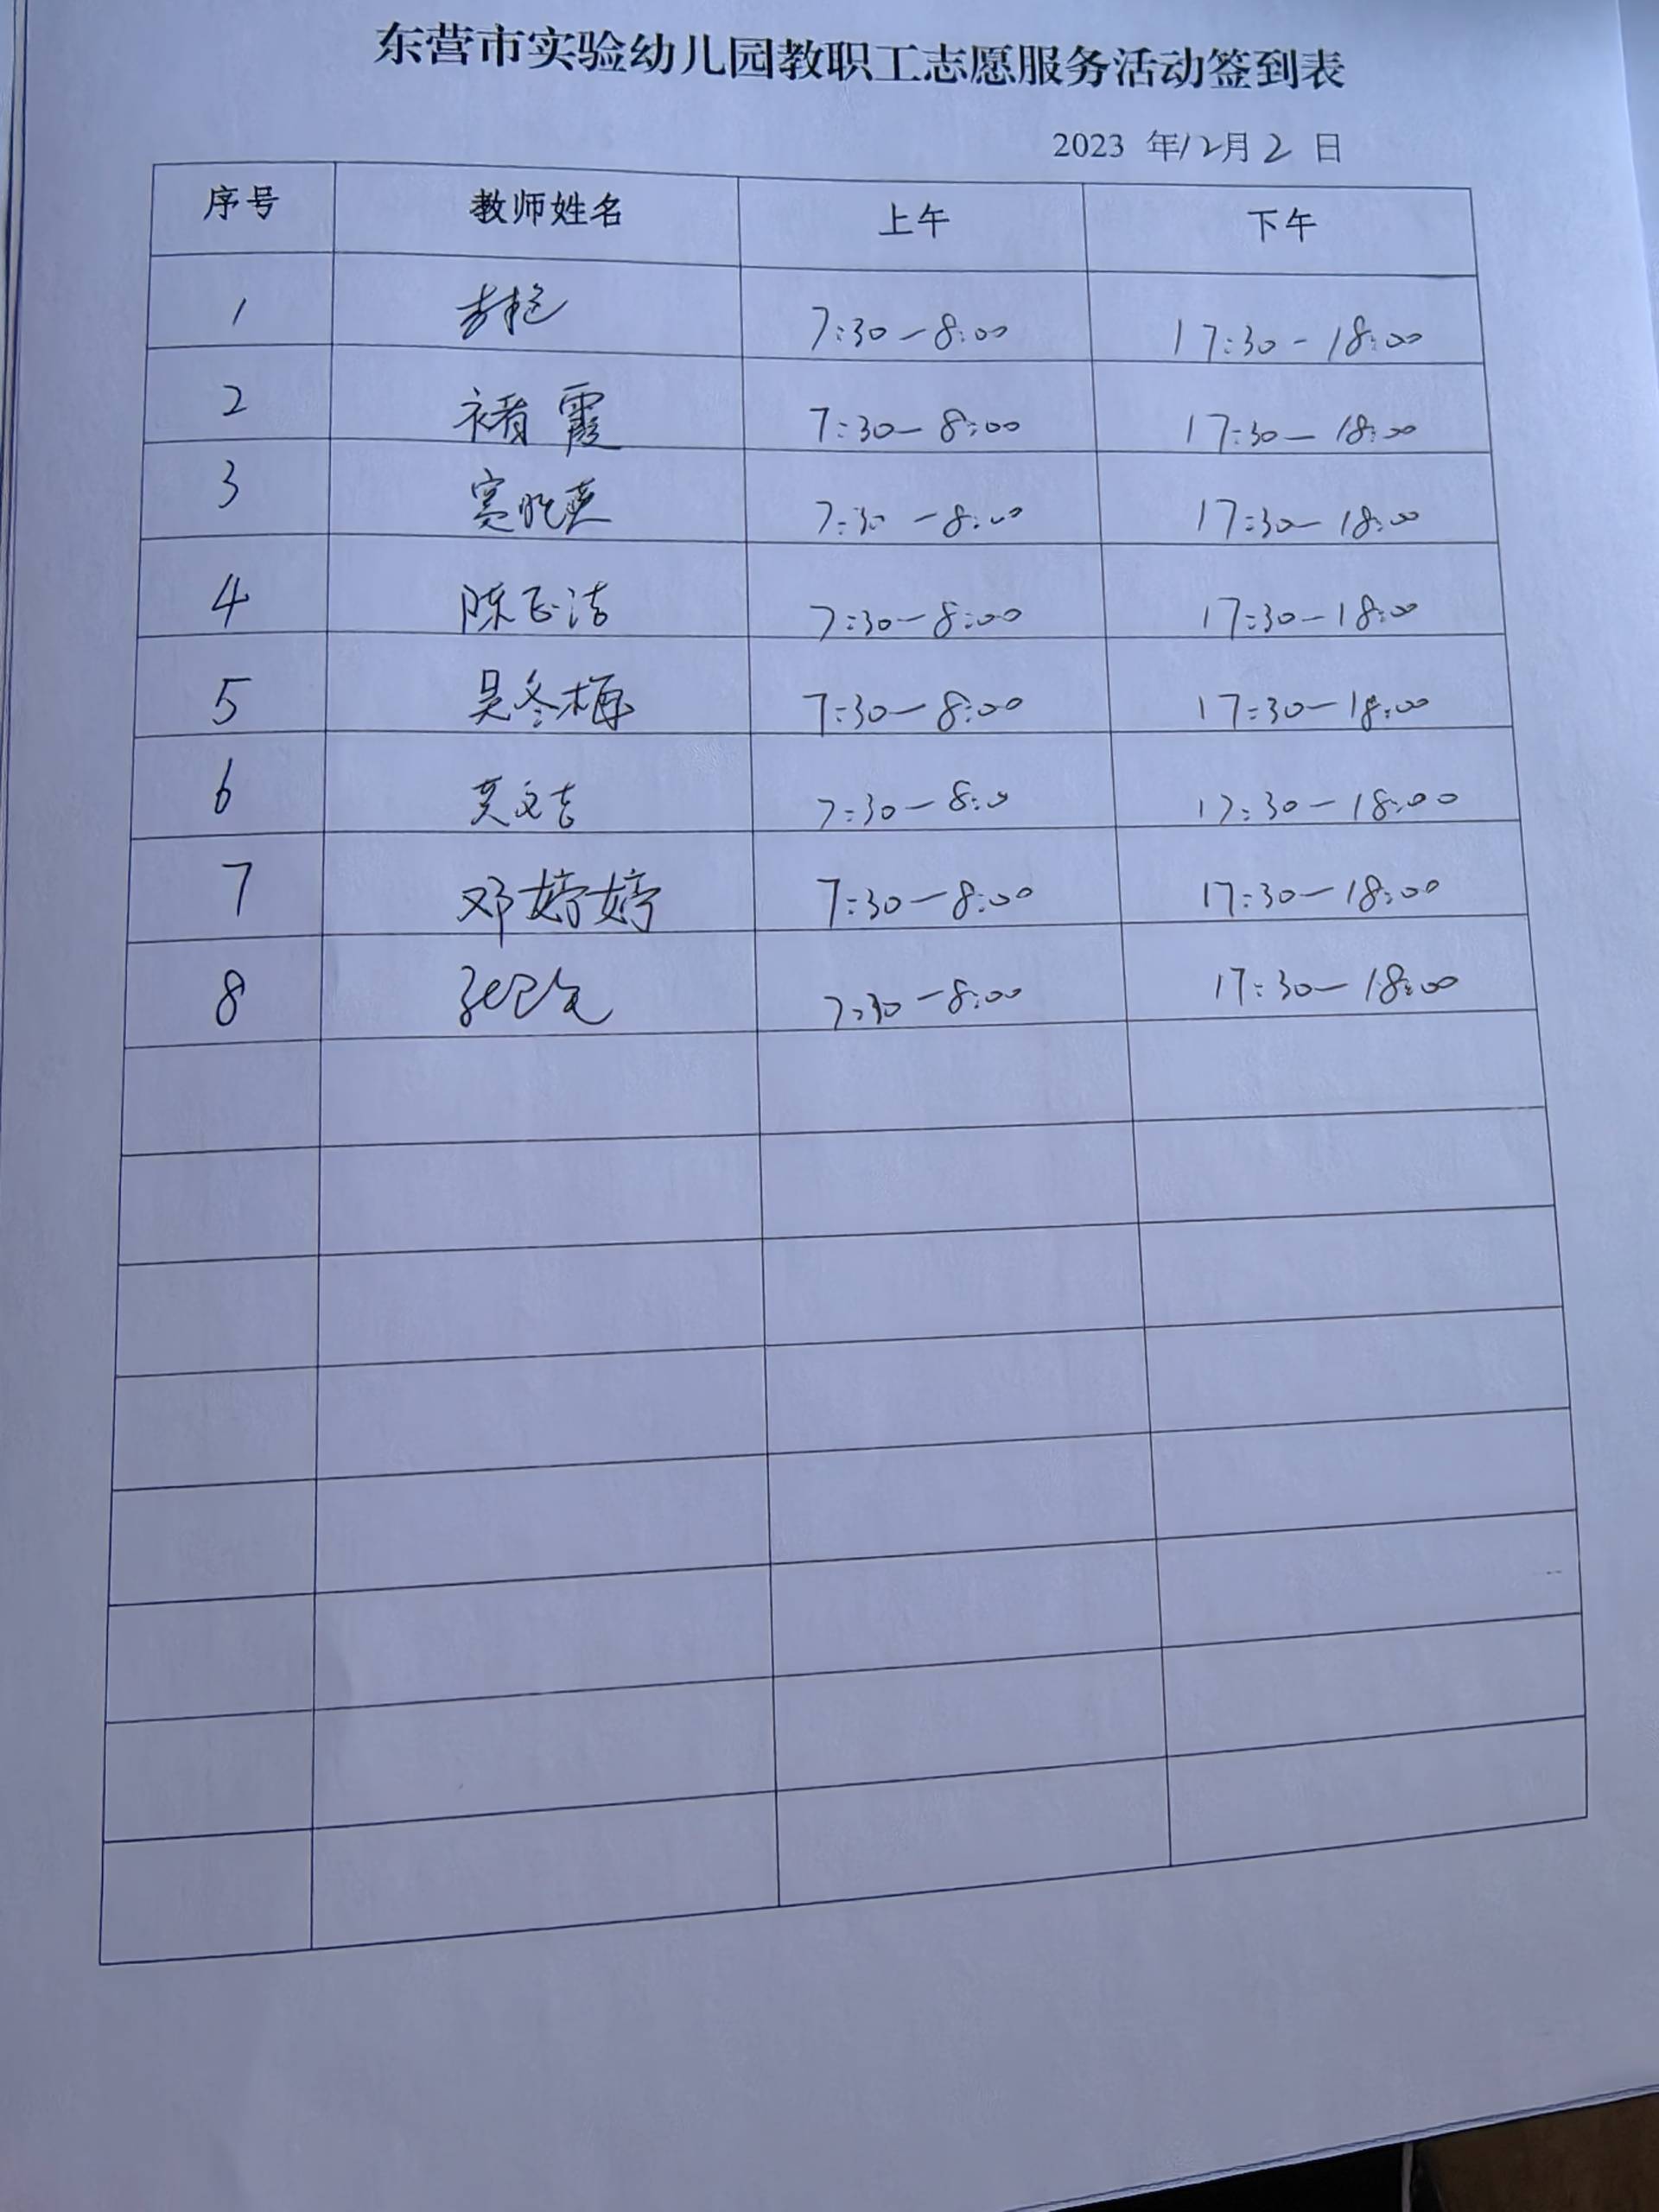 东营市实验幼儿园教职工志愿服务活动签到表
2023 年12月2日
序号 教师姓名 上午 下午
1 7:30-8:00 17:30-18:00
2 褚霞 7:30-8:00 17:30-18:00
3 7:30-8:00 17:30-18:00
4 陈正洁 7:30-8:00 17:30-18:00
5 吴冬梅 7:30-8:00 17:30-18:00
6 7:30-8:00 17:30-18:00
7 邓婷婷 7:30-8:00 17:30-18:00
8 7:30-8:00 17:30-18:00